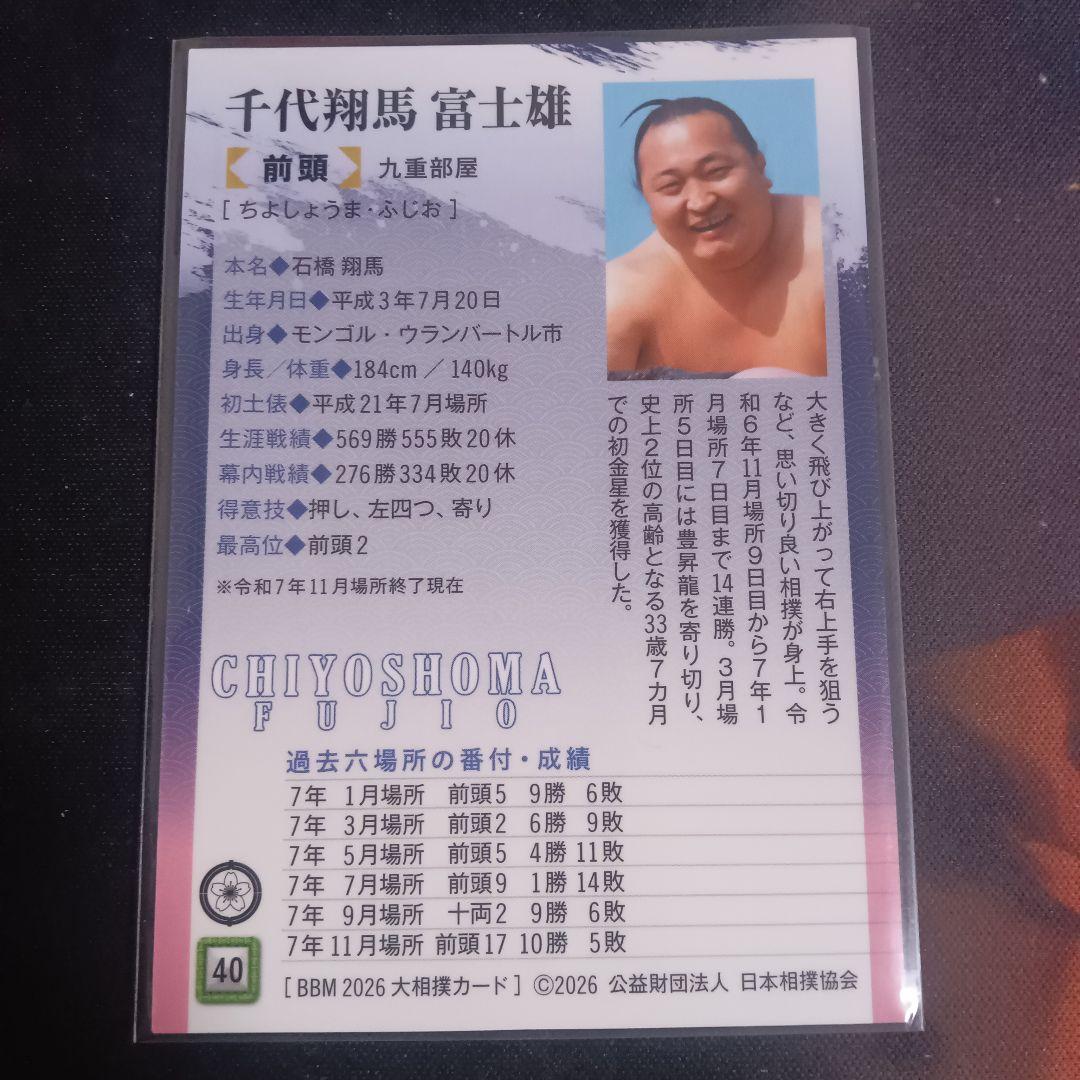 千代翔馬 富士雄
前頭 九重部屋
[ ちよしょうま・ふじお ]
本名◆石橋 翔馬
生年月日◆平成3年7月20日
出身◆モンゴル・ウランバートル市
身長／体重◆184cm ／ 140kg
初土俵◆平成21年7月場所
生涯戦績◆569勝555敗20休
幕内戦績◆276勝334敗20休
得意技◆押し、左四つ、寄り
最高位◆前頭2
※令和7年11月場所終了現在
大きく飛び上がって右上手を狙う
など、思い切り良い相撲が身上。令
和6年11月場所9日目から7年1
月場所7日目まで14連勝。3月場
所5日目には豊昇龍を寄り切り、
史上2位の高齢となる33歳7カ月
での初金星を獲得した。
CHIYOSHOMA
FUJIO
過去六場所の番付・成績
7年 1月場所 前頭5 9勝 6敗
7年 3月場所 前頭2 6勝 9敗
7年 5月場所 前頭5 4勝 11敗
7年 7月場所 前頭9 1勝 14敗
7年 9月場所 十両2 9勝 6敗
7年 11月場所 前頭17 10勝 5敗
40
[ BBM 2026 大相撲カード ] ©2026 公益財団法人 日本相撲協会